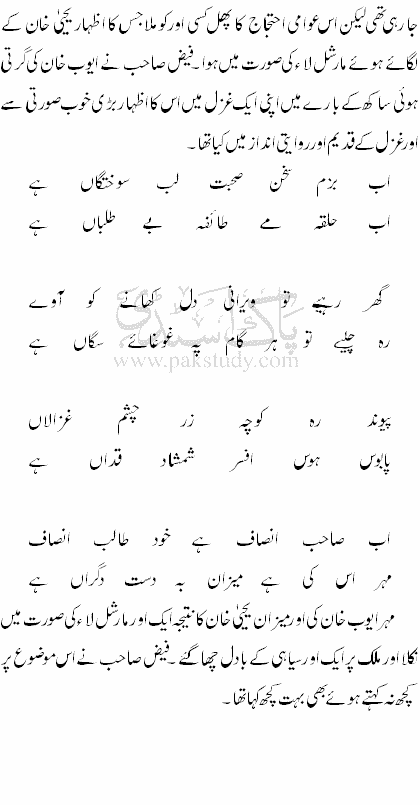 جا رہی تھی لیکن اس عوامی احتجاج کا پھل کسی اور کو ملا جس کا اظہار یحییٰ خان کے
لگائے ہوئے مارشل لاء کی صورت میں ہوا۔ فیض صاحب نے ایوب خان کی گرتی
ہوئی ساکھ کے بارے میں اپنی ایک غزل میں اس کا اظہار بڑی خوب صورتی سے
اور غزل کے قدیم اور روایتی انداز میں کیا تھا۔
اب بزم سخن صحبت لب سوختگاں ہے
اب حلقہ مے طائفہ بے طلباں ہے
گھر رہیے تو ویرانی دل کھانے کو آوے
رہ چلیے تو ہر گام پہ غوغائے سگاں ہے
پاک سٹڈی
www.pakstudy.com
پیوند رہ کوچہ زر چشم غزالاں
پابوس ہوس افسر شمشاد قداں ہے
اب صاحب انصاف ہے خود طالب انصاف
مہر اس کی ہے میزان بہ دست دگراں ہے
مہر ایوب خان کی اور میزان یحییٰ خان کا نتیجہ ایک اور مارشل لاء کی صورت میں
نکلا اور ملک پر ایک اور سیاہی کے بادل چھا گئے۔ فیض صاحب نے اس موضوع پر
کچھ نہ کہتے ہوئے بھی بہت کچھ کہا تھا۔